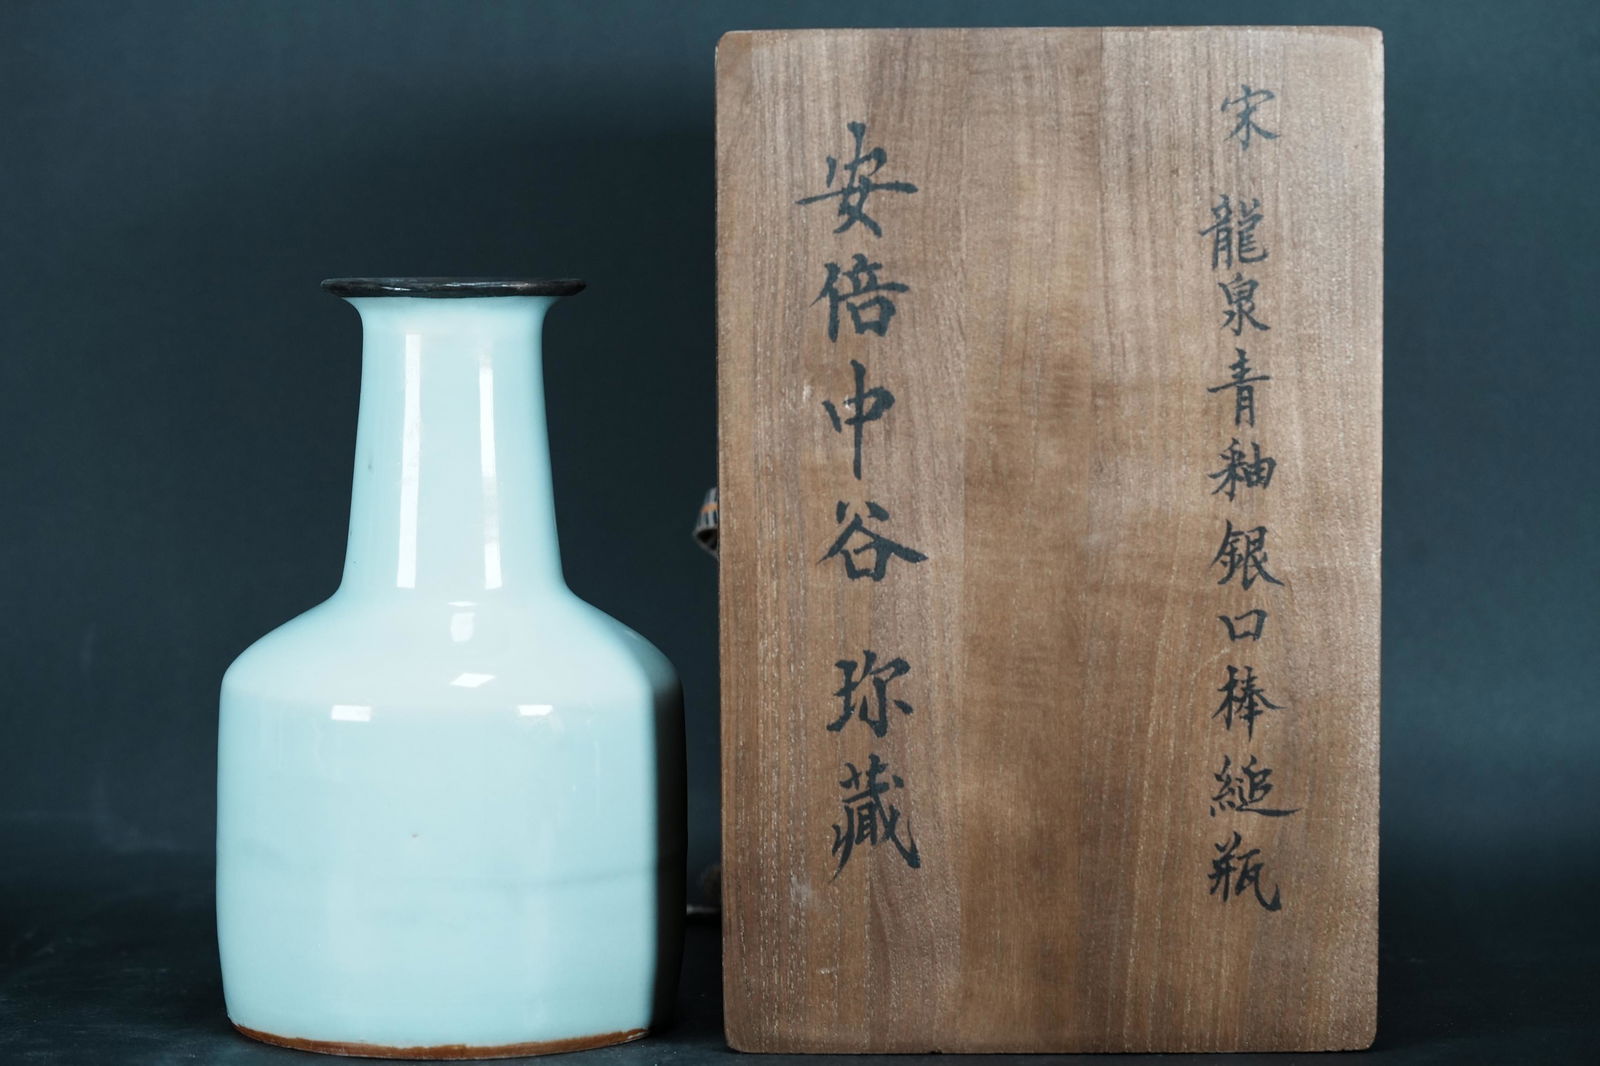 宋 龍泉青釉銀口棒縋瓶
安倍中谷 珎藏